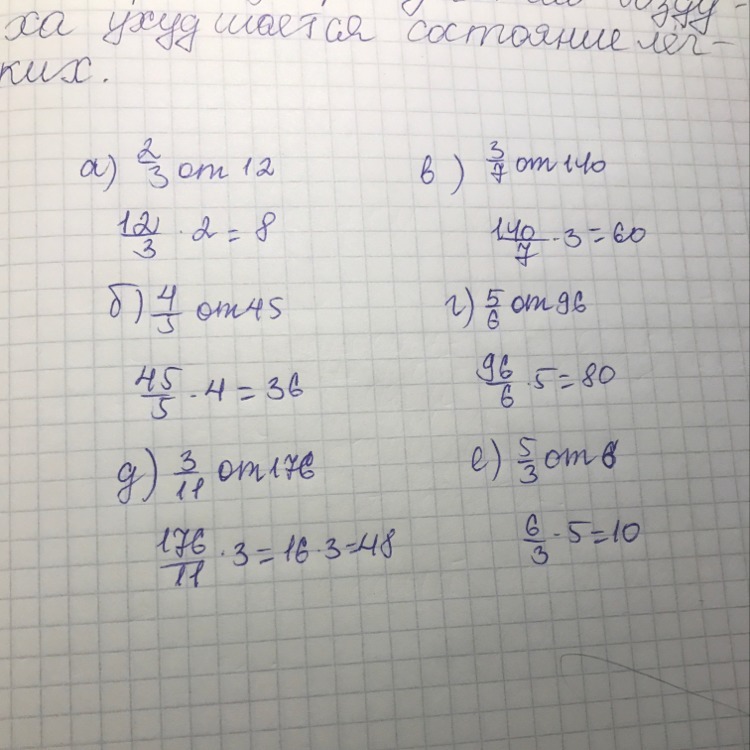 ха ухудшается состояние лёг-
ких.
а) 2/3 от 12
12/3 · 2 = 8
б) 4/5 от 45
45/5 · 4 = 36
д) 3/11 от 176
176/11 · 3 = 16 · 3 = 48
в) 3/7 от 140
140/7 · 3 = 60
г) 5/6 от 96
96/6 · 5 = 80
е) 5/3 от 6
6/3 · 5 = 10